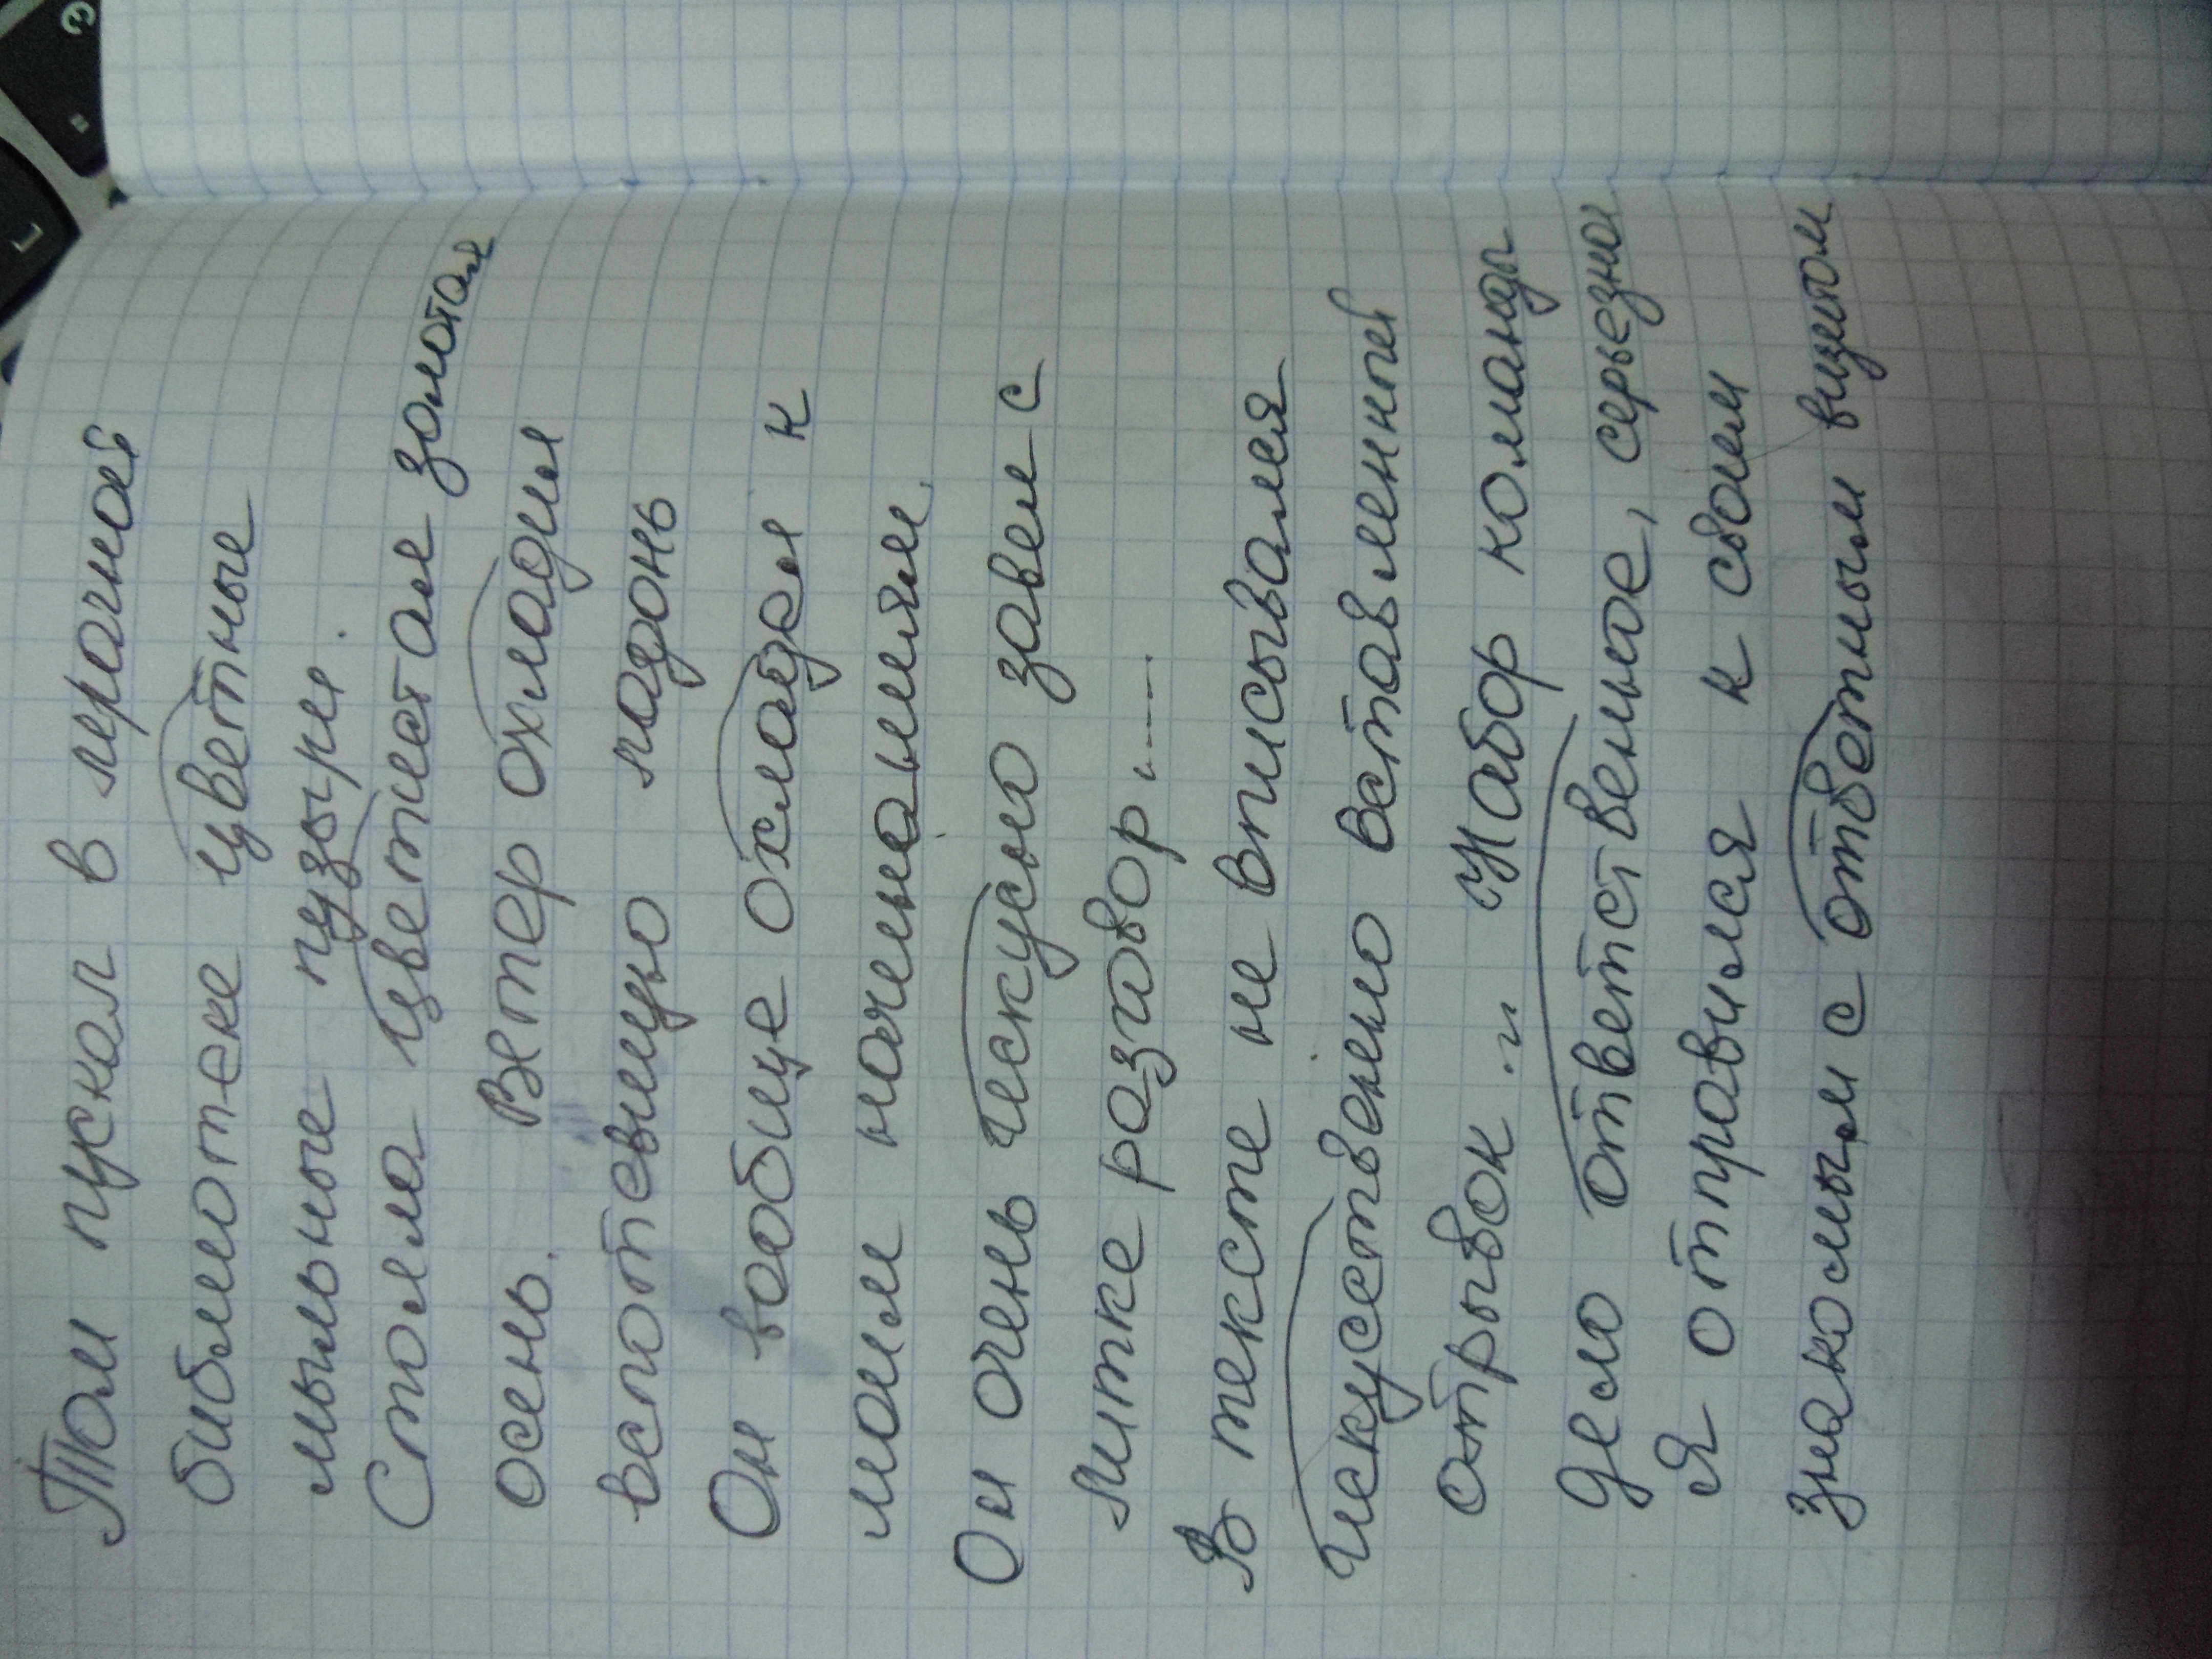 Том пускал в мрачной
библиотеке цветные
мыльные пузыри.
Стояла цветистая золотая
осень. Ветер охладил
вспотевшую ладонь
Он вообще охладел к
моим начинаниям.
Он очень искусно завел с
Митке разговор......
В тексте не вписывался
искуственно вставленный
отрывок. " Набор команды
дело ответственное, серьезное
Я отправился к своим
знакомым с ответным визитом